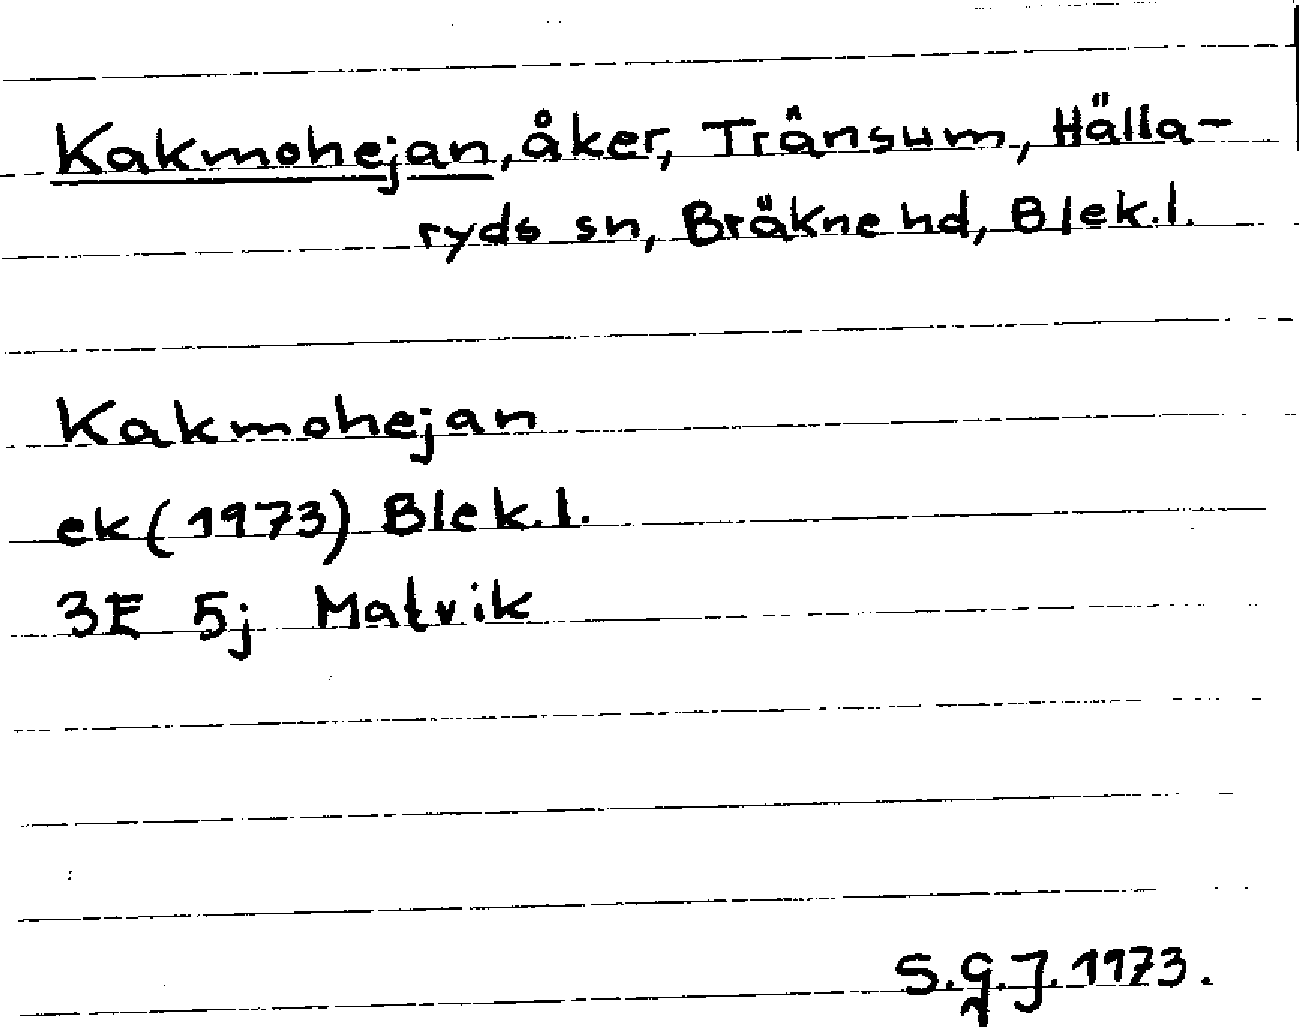 Kakmohejan, åker, Tränsum, Hälla-
ryds sn, Bräkne hd, Blek.l.
Kakmohejan
ek (1973) Blek.l.
3E 5j Matvik
S.G.J. 1973.